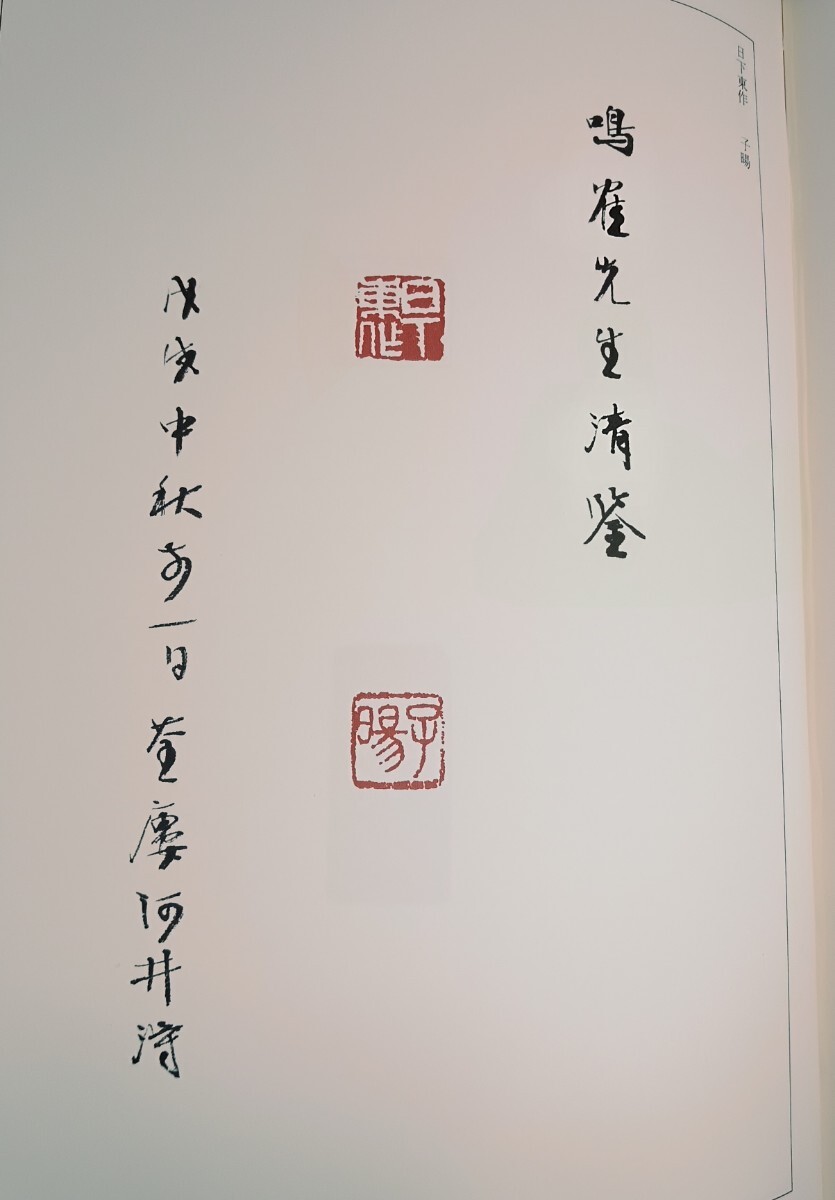 日下東作　子暘
鳴隺先生清鑒
日下東作
子暘
戊戌中秋前一日荃廔河井得